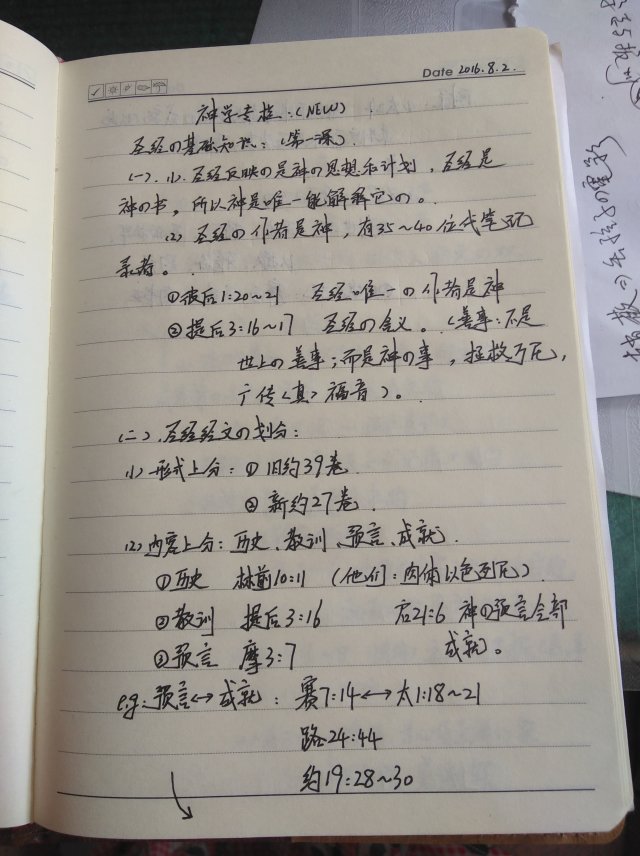 Date 2016.8.2.
神学专栏:(NEW)
圣经の基础知识:(第一课)
(一).(1).圣经反映の是神の思想和计划,圣经是
神の书,所以神是唯一能解释它の。
(2) 圣经の作者是神,有35~40位代笔记
录者。
①彼后1:20~21 圣经唯一の作者是神
②提后3:16~17 圣经の含义。(善事:不是
世上の善事;而是神の事,拯救万民,
广传<真>福音)。
(二).圣经经文の划分:
(1)形式上分:①旧约39卷
②新约27卷
(2)内容上分:历史、教训、预言、成就.
①历史 林前10:11 (他们:肉体以色列民).
②教训 提后3:16 启21:6 神の预言全部
③预言 摩3:7 成就。
e.g:预言↔成就: 赛7:14↔太1:18~21
路24:44
约19:28~30